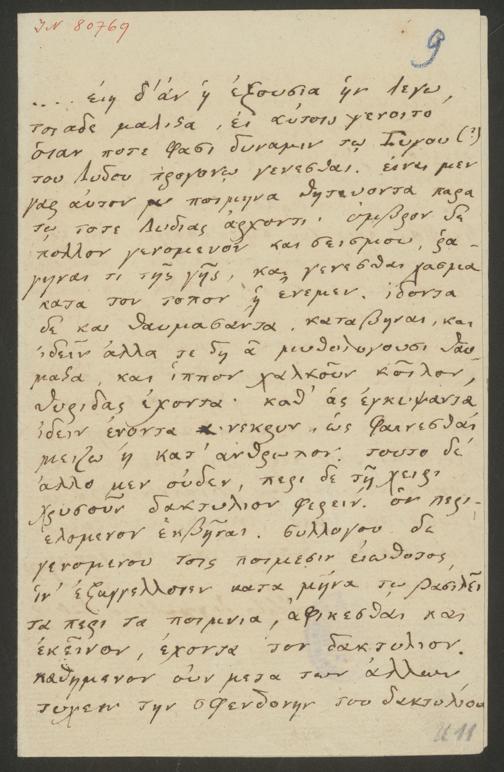 IN 80769
9
.... ειη δ'ἀν ἡ ἐξουσια ἡν λεγω,
τοιαδε μαλιςα, ἐι αὐτοιο γενοιτο
ὁιαν ποτε φασι δυναμιν τῳ Γυγου (?)
του Λυδου προγονω γενεσθαι. εἰναι μεν
γαρ αὐτον ποιμηνα θητευοντα παρα
τῳ τοτε Λυδιας ἀρχοντι. ὀμβρου δε
πολλου γενομενου και σεισμου, ῥα-
γηναι τι τῆς γῆς, και γενεσθαι χασμα
κατα τον τοπον ἡ ἐνεμεν. ἰδοντα
δε και θαυμασαντα, καταβηναι, και
ἰδεῖν ἀλλα τε δη ἁ μυθολογουσι θαυ
μαςα, και ἱππον χαλκοῦν κοῖλον,
θυριδας ἐχοντα· καθ' ἁς ἐγκυψαντα
ἰδειν ἐνοντα νεκρον, ὡς φαινεσθαι
μειζω ἡ κατ' ἀνθρωπον. τουτο δε
ἀλλο μεν οὐδεν, περι δε τῇ χειρι
χρυσοῦν δακτυλιον φερειν. ὁν περι-
ελομενον ἐκβῆναι. συλλογου δε
γενομενου τοις ποιμεσιν εἰωθοτος,
ἱν' ἐξαγγελλοιεν κατα μῆνα τῳ βασιλεῖ
τα περι τα ποιμνια, ἀφικεσθαι και
ἐκεῖνον, ἐχοντα τον δακτυλιον.
καθημενον οὐν μετα των ἀλλων,
τυχειν την σφενδονην του δακτυλιου